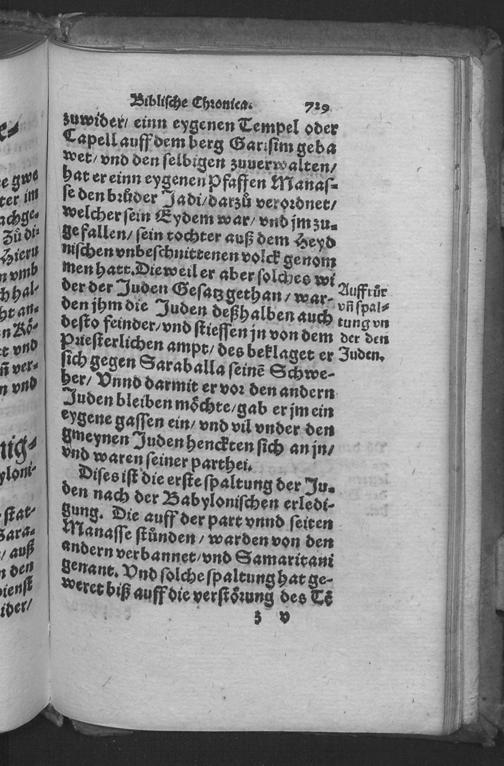 Biblische Chronica. 729
zuwider/ einn eygenen Tempel oder
Capell auff dem berg Garisim geba
wet/ vnd den selbigen zuuerwalten/
hat er einn eygenen Pfaffen Manas-
se den brůder Jadi/ darzů verordnet/
welcher sein Eydem war/ vnd jm zu-
gefallen/ sein tochter auß dem Heyd
nischen vnbeschnittenen volck genom
men hatt. Dieweil er aber solches wi
der der Juden Gesatz gethan/ war-
den jhm die Juden deßhalben auch
desto feinder/ vnd stiessen jn von dem
Priesterlichen ampt/ des beklaget er
sich gegen Saraballa seinē Schwe-
her/ Vnnd darmit er vor den andern
Juden bleiben möchte/ gab er jm ein
eygene gassen ein/ vnd vil vnder den
gmeynen Juden henckten sich an jn/
vnd waren seiner parthei.
Auffrůr
vn̄ spal-
tung vn
der den
Juden.
Dises ist die erste spaltung der Ju-
den nach der Babylonischen erledi-
gung. Die auff der part vnnd seiten
Manasse stünden/ warden von den
andern verbannet/ vnd Samaritani
genant. Vnd solche spaltung hat ge-
weret biß auff die verstörung des Tē
z v